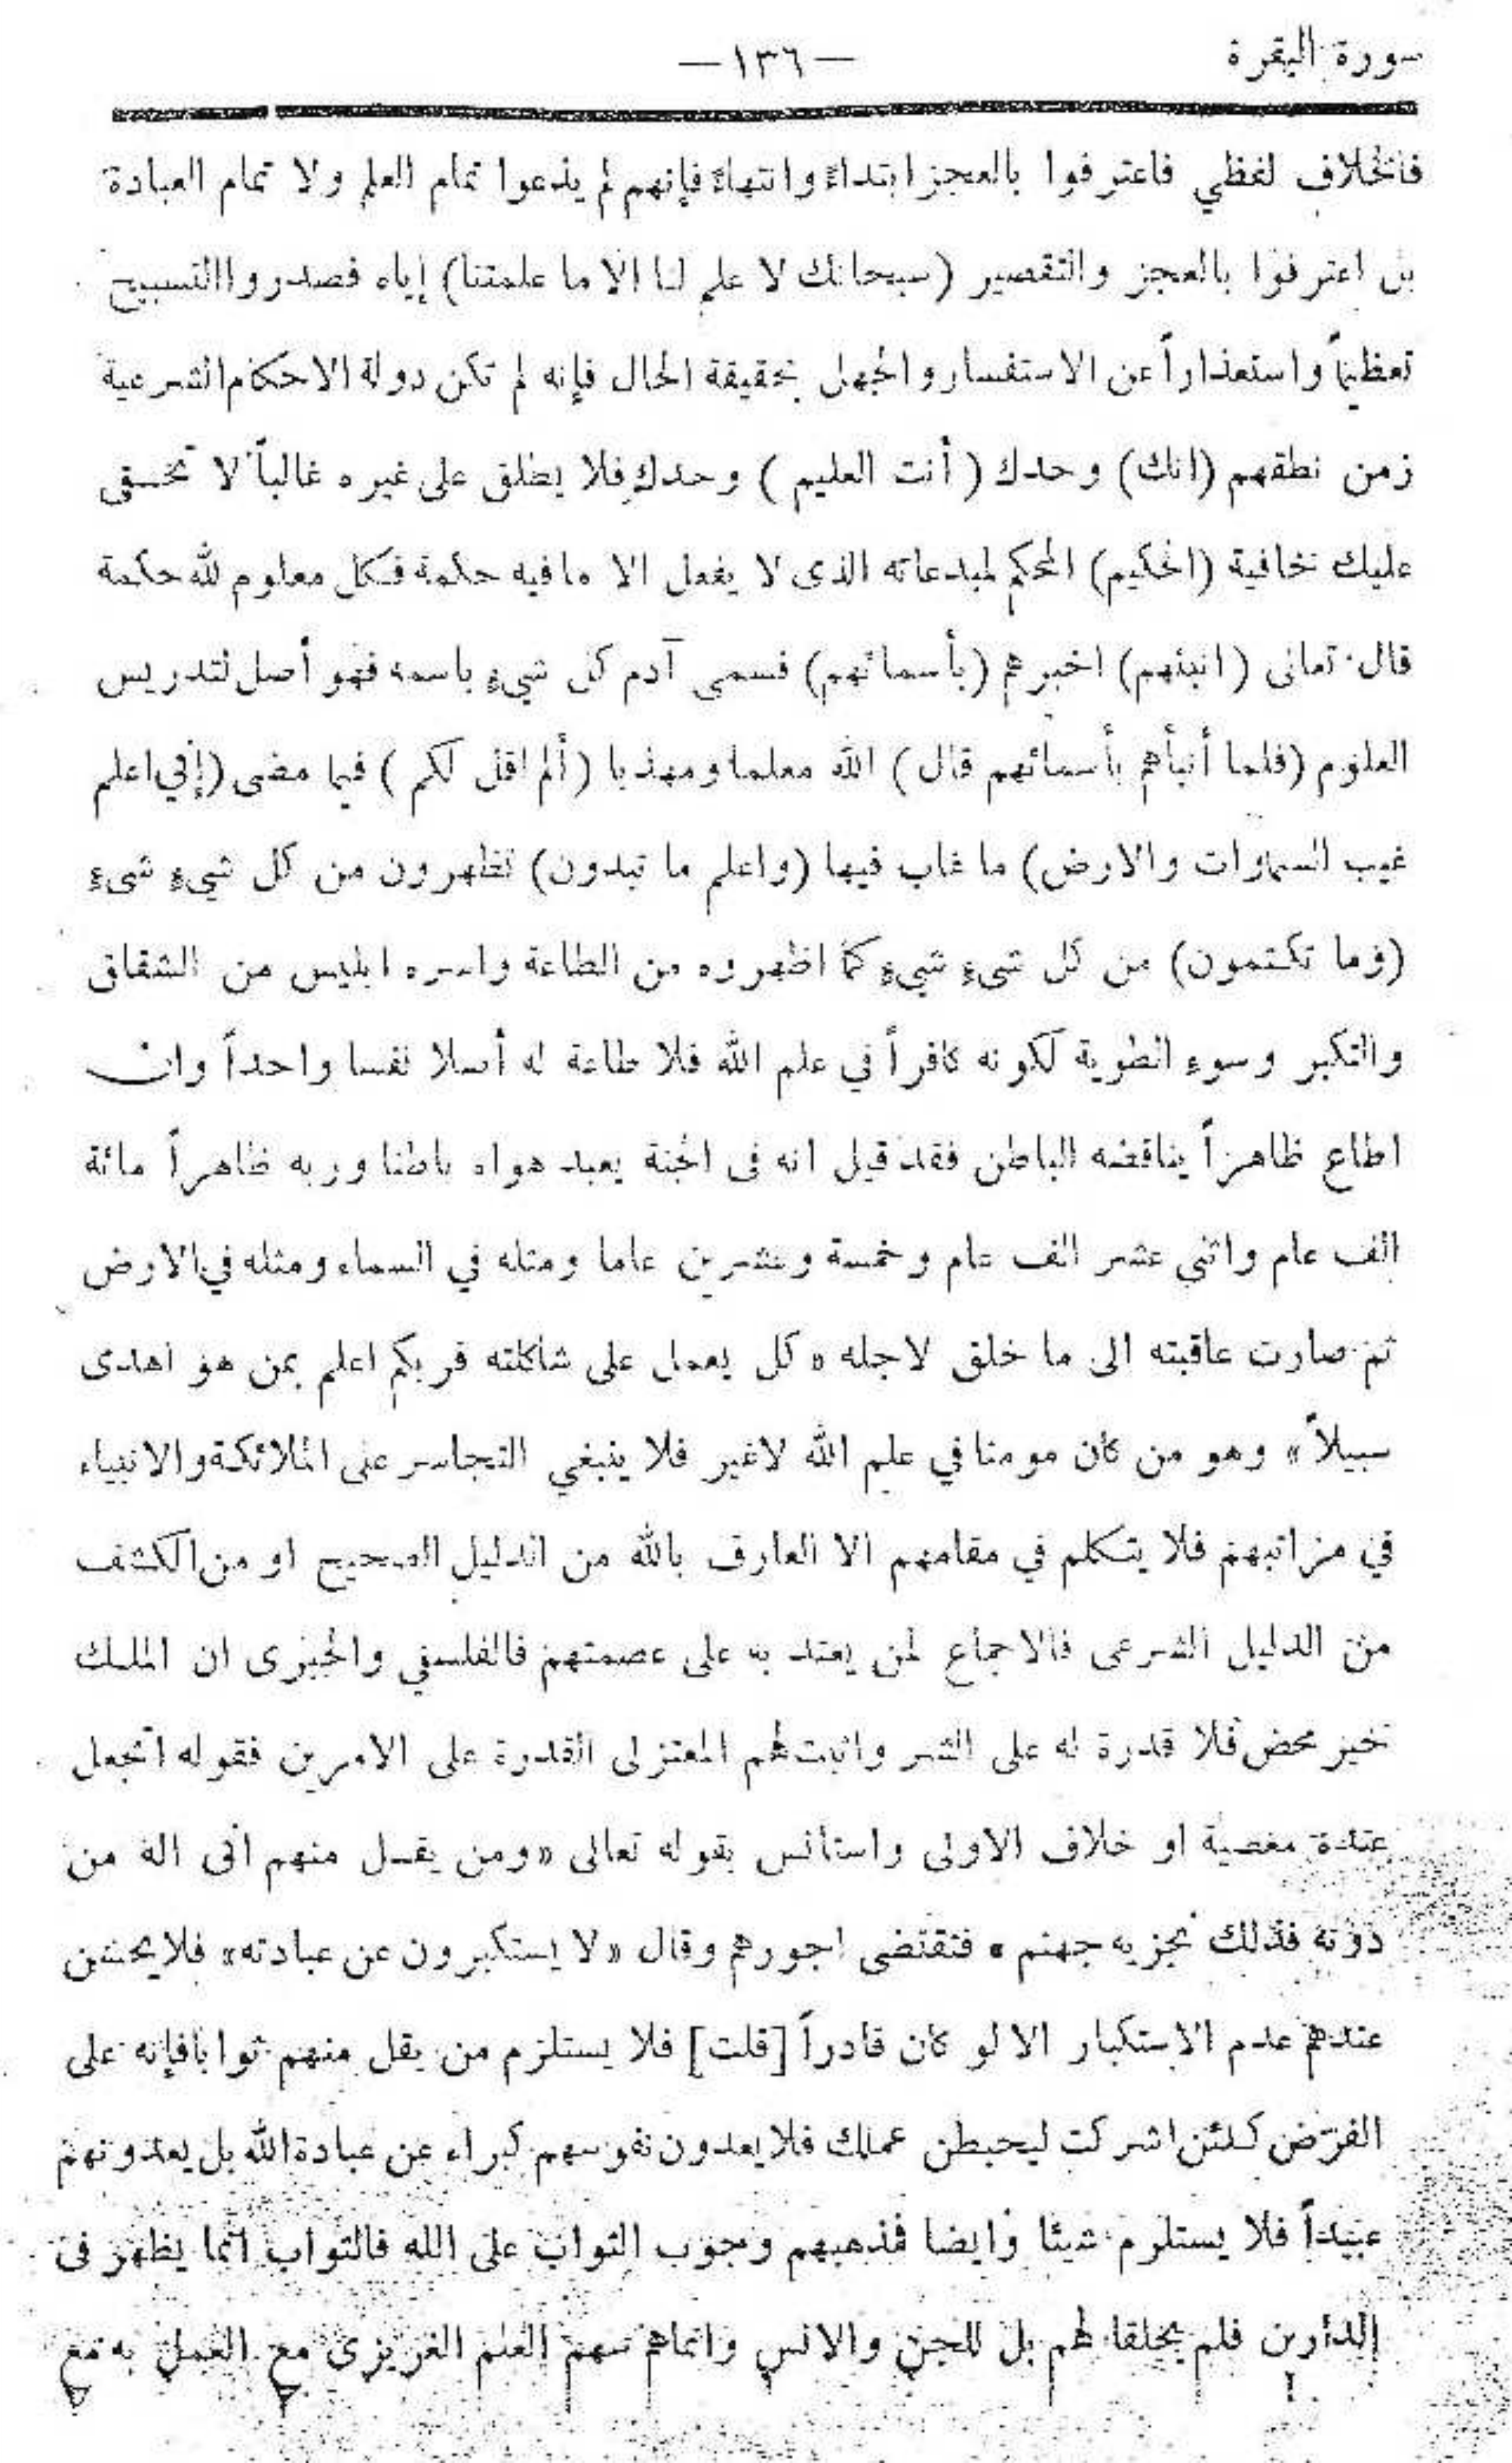 سورة البقرة
— ١٣٦ —
فالخلاف لفظي فاعترفوا بالعجز ابتداءً وانتهاءً فإنهم لم يدعوا تمام العلم ولا تمام العبادة
بل اعترفوا بالعجز والتقصير (سبحانك لا علم لنا الا ما علمتنا) إياه فصدروا التسبيح
تعظيماً واستعذاراً عن الاستفسار والجهل بحقيقة الحال فإنه لم تكن دولة الاحكام الشرعية
زمن نطقهم (انك) وحدك (أنت العليم) وحدك فلا يطلق على غيره غالباً لا تخفى
عليك خافية (الحكيم) المحكم لمبدعاته الذى لا يفعل الا ما فيه حكمة فكل معلوم لله حكمة
قال تعالى (انبئهم) اخبرهم (بأسمائهم) فسمى آدم كل شيءٍ باسمه فهو أصل لتدريس
العلوم (فلما أنبأهم بأسمائهم قال) الله معلما ومهذبا (ألم اقل لكم) فيما مضى (إني اعلم
غيب السماوات والارض) ما غاب فيها (واعلم ما تبدون) تظهرون من كل شيءٍ شىءٍ
(وما تكتمون) من كل شىءٍ شيءٍ كما اظهروه من الطاعة واسره ابليس من الشقاق
والتكبر وسوء الطوية لكونه كافراً في علم الله فلا طاعة له أصلا نفسا واحداً وان
اطاع ظاهراً يناقضه الباطن فقد قيل انه فى الجنة يعبد هواه باطنا وربه ظاهراً مائة
الف عام واثني عشر الف عام وخمسة وعشرين عاما ومثله في السماء ومثله في الارض
ثم صارت عاقبته الى ما خلق لاجله «كل يعمل على شاكلته فربكم اعلم بمن هو اهدى
سبيلاً» وهو من كان مومنا في علم الله لاغير فلا ينبغي التجاسر على الملائكة والانبياء
في مراتبهم فلا يتكلم في مقامهم الا العارف بالله من الدليل الصحيح او من الكشف
من الدليل الشرعى فالاجماع لمن يعتد به على عصمتهم فالفلسفي والجبرى ان الملك
خير محض فلا قدرة له على الشر واثبت لهم المعتزلى القدرة على الامرين فقوله اتجعل
عنده معصية او خلاف الاولى واستأنس بقوله تعالى «ومن يقل منهم انى اله من
دونه فذلك نجزيه جهنم» فتقتضى اجورهم وقال «لا يستكبرون عن عبادته» فلا يحسن
عندهم عدم الاستكبار الا لو كان قادراً [قلت] فلا يستلزم من يقل منهم ثوابا فإنه على
الفرض كلئن اشركت ليحبطن عملك فلا يعدون نفوسهم كبراء عن عبادة الله بل يعدونهم
عبيداً فلا يستلزم شيئا وايضا فمذهبهم وجوب الثواب على الله فالثواب انما يظهر فى
الدارين فلم يخلقا لهم بل للجن والانس وانما هم سهم العلم الغريزى مع العمل به مع